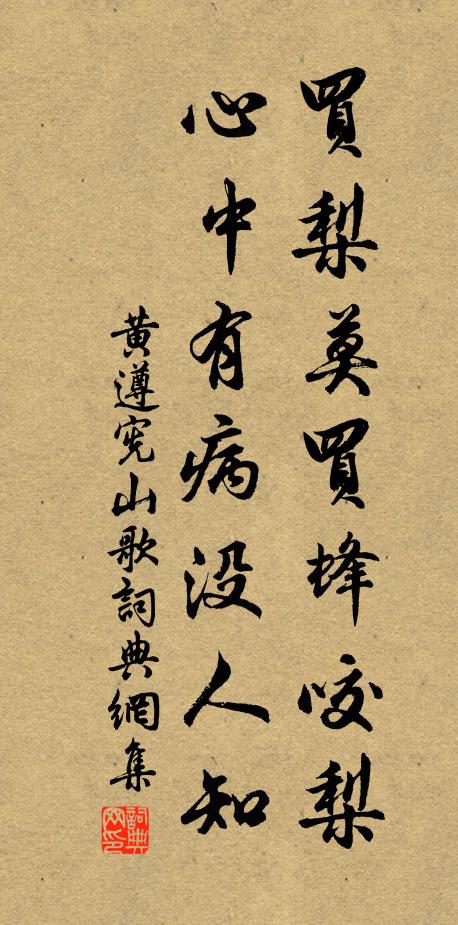 買梨莫買蜂咬梨
心中有病没人知
黃遵憲山歌詞典網集
詞典网印